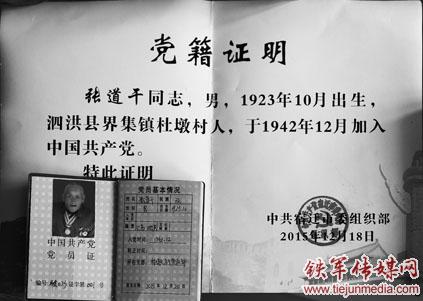 党籍证明
张道干同志，男，1923年10月出生，
泗洪县界集镇杜墩村人，于1942年12月加入
中国共产党。
特此证明
中共宿迁市委组织部
2015年12月18日
中国共产党
党员证
编号
党员基本情况
铁军传媒网
www.tiejunmedia.com